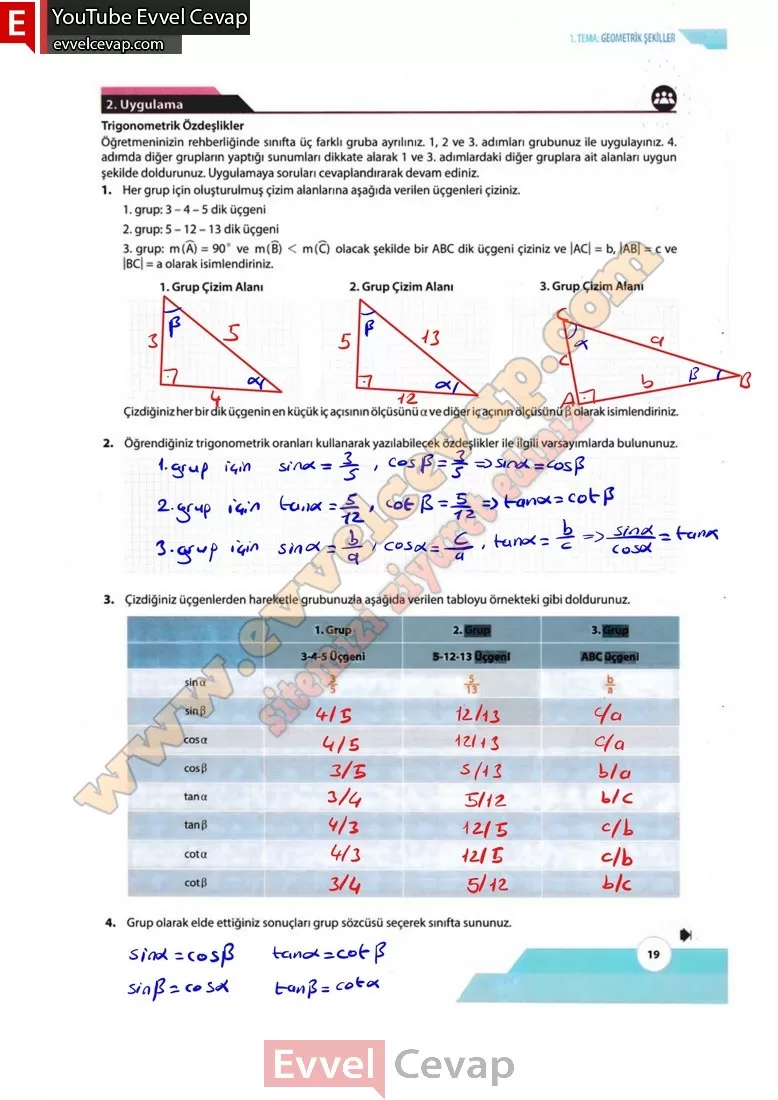 E YouTube Evvel Cevap
evvelcevap.com
1. TEMA: GEOMETRİK ŞEKİLLER
2. Uygulama
Trigonometrik Özdeşlikler
Öğretmeninizin rehberliğinde sınıfta üç farklı gruba ayrılınız. 1, 2 ve 3. adımları grubunuz ile uygulayınız. 4.
adımda diğer grupların yaptığı sunumları dikkate alarak 1 ve 3. adımlardaki diğer gruplara ait alanları uygun
şekilde doldurunuz. Uygulamaya soruları cevaplandırarak devam ediniz.
1. Her grup için oluşturulmuş çizim alanlarına aşağıda verilen üçgenleri çiziniz.
1. grup: 3 – 4 – 5 dik üçgeni
2. grup: 5 – 12 – 13 dik üçgeni
3. grup: m(Â) = 90° ve m(B̂) < m(Ĉ) olacak şekilde bir ABC dik üçgeni çiziniz ve |AC| = b, |AB| = c ve
|BC| = a olarak isimlendiriniz.
1. Grup Çizim Alanı 2. Grup Çizim Alanı 3. Grup Çizim Alanı
3 β 5 α 4
5 β 13 α 12
C α a c b β B A
Çizdiğiniz her bir dik üçgenin en küçük iç açısının ölçüsünü α ve diğer iç açının ölçüsünü β olarak isimlendiriniz.
2. Öğrendiğiniz trigonometrik oranları kullanarak yazılabilecek özdeşlikler ile ilgili varsayımlarda bulununuz.
1. grup için sinα = 3/5 , cosβ = 3/5 => sinα = cosβ
2. grup için tanα = 5/12 , cotβ = 5/12 => tanα = cotβ
3. grup için sinα = b/a , cosα = c/a , tanα = b/c => sinα/cosα = tanα
3. Çizdiğiniz üçgenlerden hareketle grubunuzla aşağıda verilen tabloyu örnekteki gibi doldurunuz.
1. Grup 2. Grup 3. Grup
3-4-5 Üçgeni 5-12-13 Üçgeni ABC Üçgeni
sin α 3/5 5/13 b/a
sin β 4/5 12/13 c/a
cos α 4/5 12/13 c/a
cos β 3/5 5/13 b/a
tan α 3/4 5/12 b/c
tan β 4/3 12/5 c/b
cot α 4/3 12/5 c/b
cot β 3/4 5/12 b/c
4. Grup olarak elde ettiğiniz sonuçları grup sözcüsü seçerek sınıfta sununuz.
sinα = cosβ tanα = cotβ
sinβ = cosα tanβ = cotα
19
www.evvelcevap.com
sitemizi ziyaret ediniz
Evvel Cevap